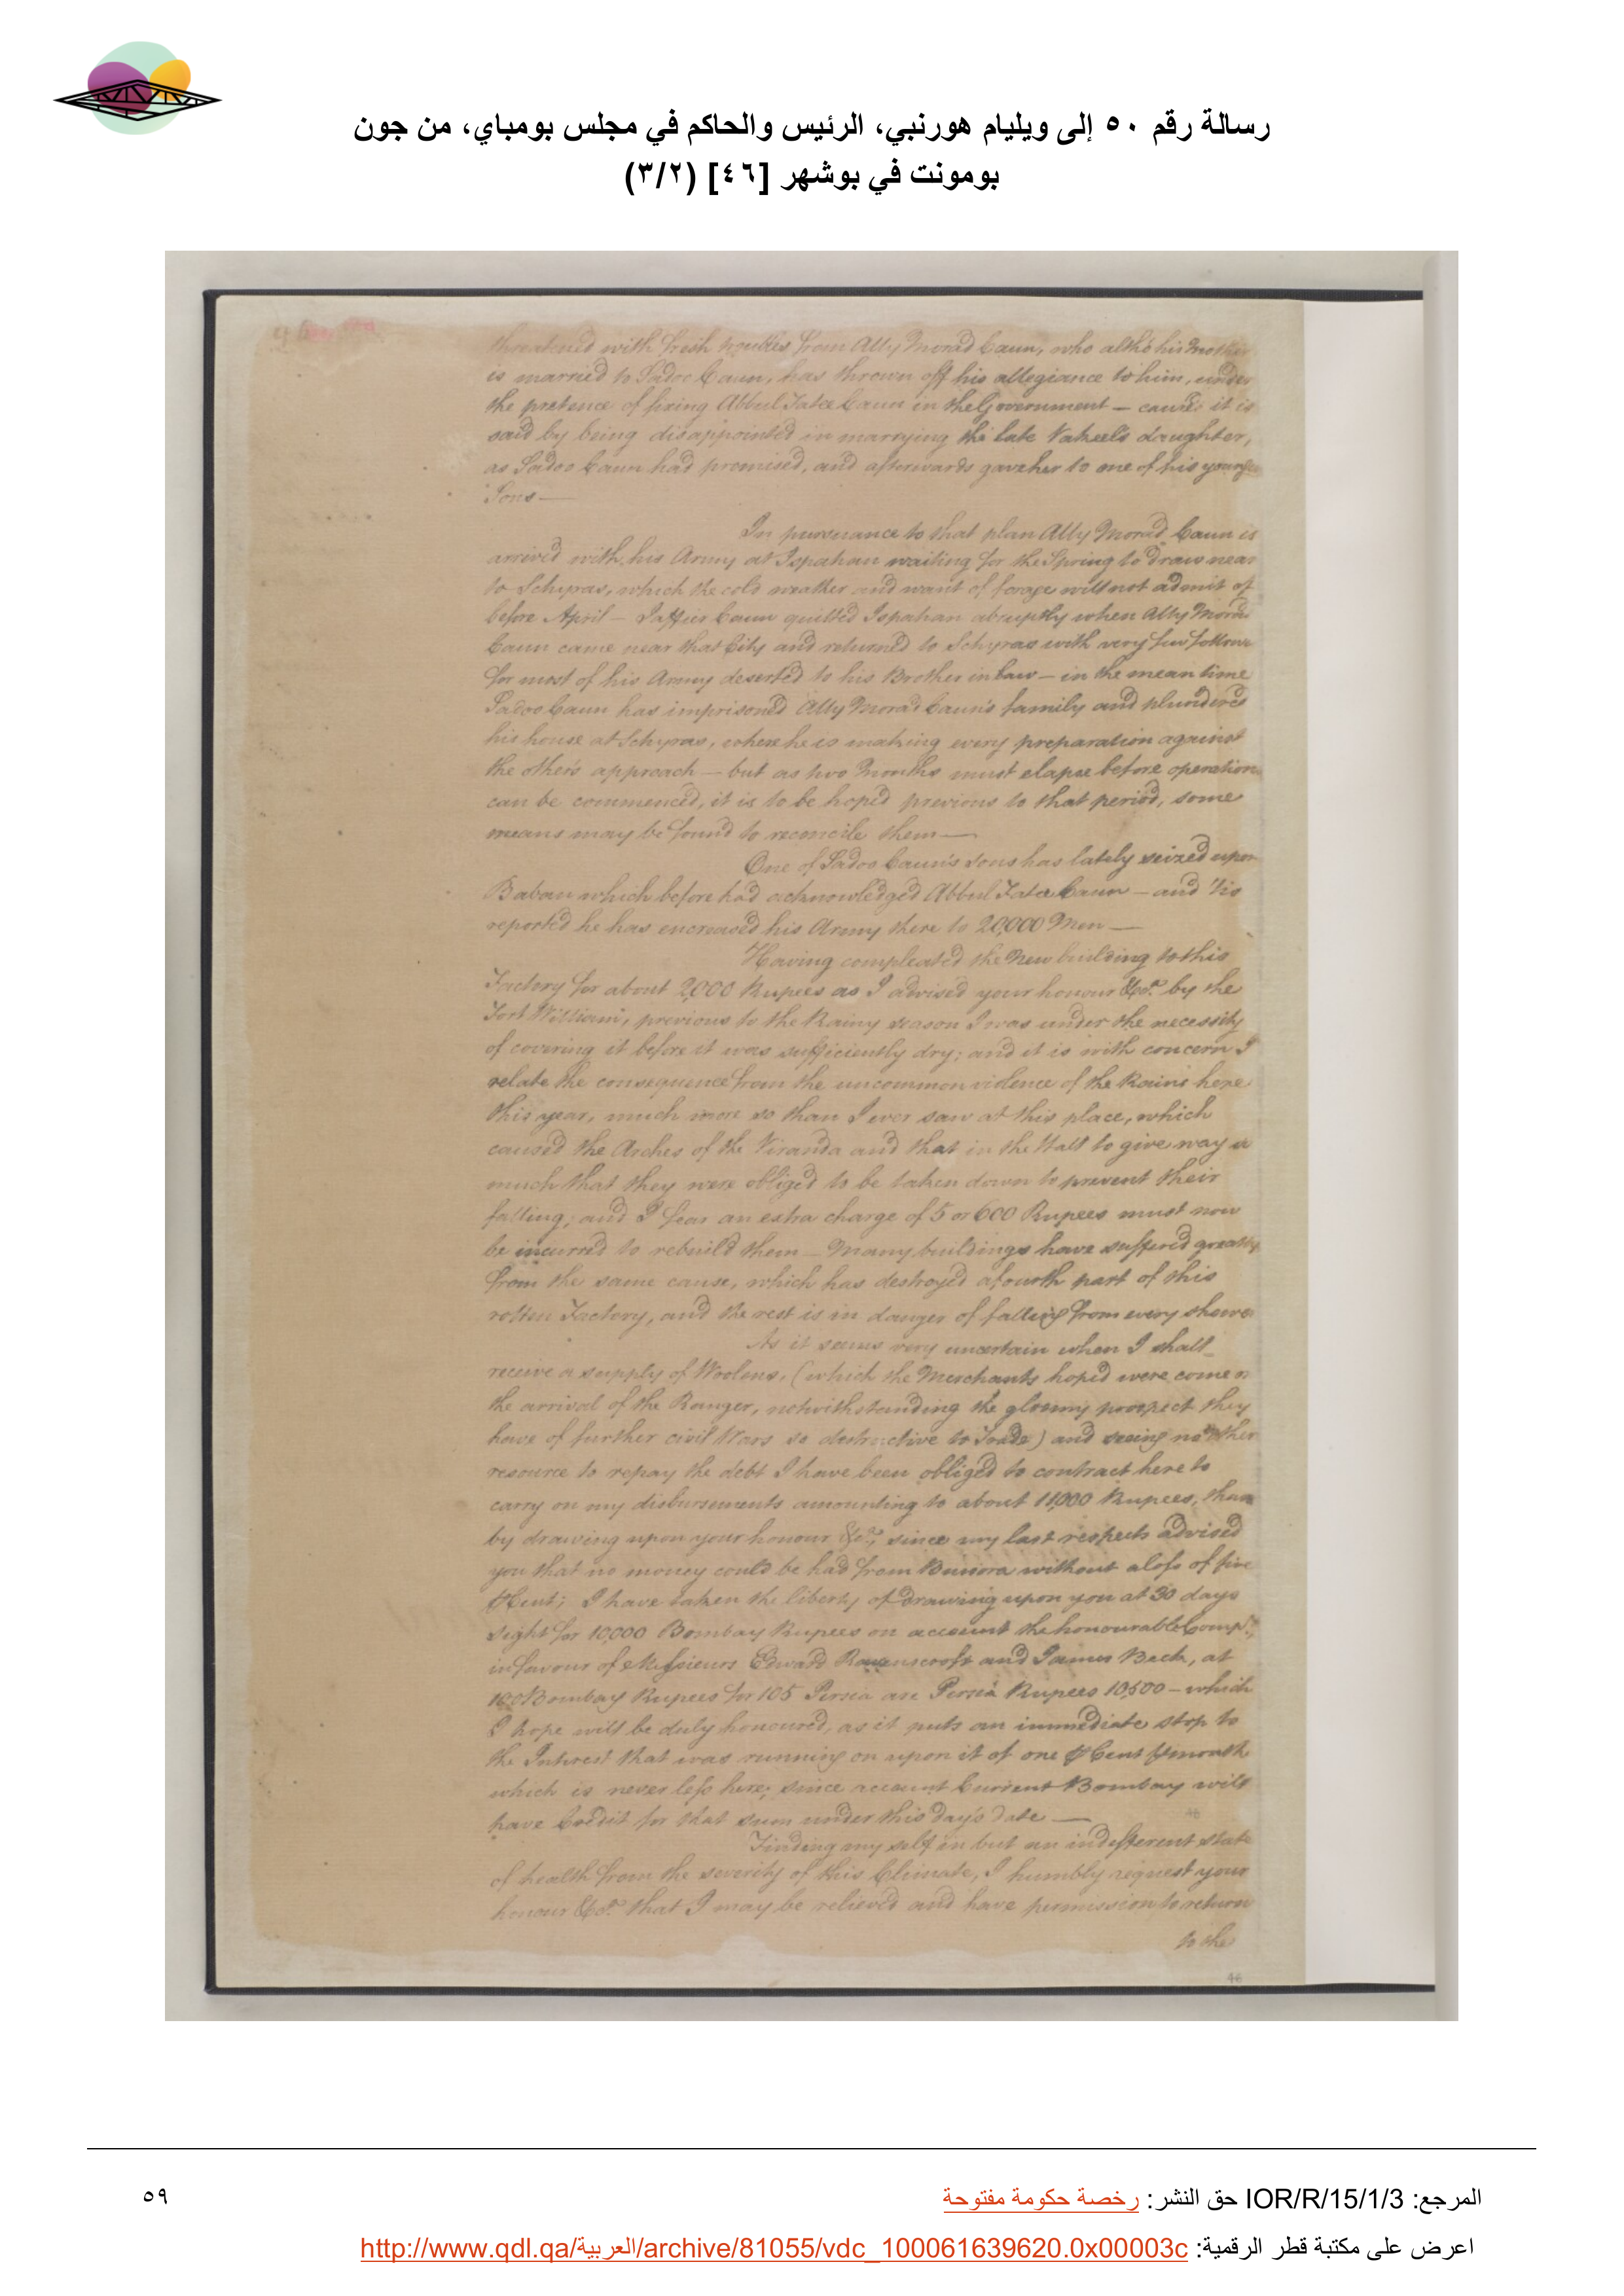 رسالة رقم ٥٠ إلى ويليام هورنبي، الرئيس والحاكم في مجلس بومباي، من جون
بومونت في بوشهر [٤٦] (٣/٢)
threatened with fresh troubles from Ally Morad Caun, who altho his Mother
is married to Sadoc Caun, has thrown off his allegiance to him, under
the pretence of fixing Abbul Fatee Caun in the Government — caused it is
said by being disappointed in marrying the late Vakeel's daughter,
as Sadoc Caun had promised, and afterwards gave her to one of his younger
Sons —
In pursuance to that plan Ally Morad Caun is
arrived with his Army at Ispahan waiting for the Spring to draw near
to Schyras, which the cold weather and want of forage will not admit of
before April — Jaffier Caun quitted Ispahan abruptly when Ally Morad
Caun came near that City and returned to Schyras with very few
for most of his Army deserted to his Brother in law — in the mean time
Sadoc Caun has imprisoned Ally Morad Caun's family and plundered
his house at Schyras, where he is making every preparation against
the other's approach — but as two Months must elapse before operations
can be commenced, it is to be hoped previous to that period, some
means may be found to reconcile them —
One of Sadoc Caun's sons has lately seized upon
Baban which before had acknowledged Abbul Fatee Caun — and 'tis
reported he has encreased his Army there to 20,000 Men —
Having compleated the New building to this
Factory for about 2,000 Rupees as I advised your honour &ca. by the
Fort William, previous to the Rainy season I was under the necessity
of covering it before it was sufficiently dry; and it is with concern I
relate the consequence from the uncommon violence of the Rains here
this year, much more so than I ever saw at this place, which
caused the Arches of the Viranda and that in the Hall to give way so
much that they were obliged to be taken down to prevent their
falling; and I fear an extra charge of 5 or 600 Rupees must now
be incurred to rebuild them — Many buildings have suffered greatly
from the same cause, which has destroyed a fourth part of this
rotten Factory, and the rest is in danger of falling from every shower
As it seems very uncertain when I shall
receive a supply of Woolens, (which the Merchants hoped were come in
the arrival of the Ranger, notwithstanding the gloomy prospect they
have of further civil Wars so destructive to Trade) and seeing no other
resource to repay the debt I have been obliged to contract here to
carry on my disbursements amounting to about 11,000 Rupees, than
by drawing upon your honour &ca., since my last respects advised
you that no money could be had from Bussora without a loss of five
⅌ Cent; I have taken the liberty of drawing upon you at 30 days
sight for 10,000 Bombay Rupees on account the honourable Compy.
in favour of Messieurs Edward Ravenscroft and James Beck, at
100 Bombay Rupees for 105 Persia are Persia Rupees 10,500 — which
I hope will be duly honoured, as it puts an immediate stop to
the Interest that was running on upon it of one ⅌ Cent ⅌ month
which is never less here; since account Current Bombay will
have Credit for that sum under this day's date —
Finding my self in but an indifferent state
of health from the severity of this Climate, I humbly request your
honour &ca. that I may be relieved and have permission to return
to the
46
المرجع: IOR/R/15/1/3 حق النشر: رخصة حكومة مفتوحة
٥٩
اعرض على مكتبة قطر الرقمية: http://www.qdl.qa/العربية/archive/81055/vdc_100061639620.0x00003c